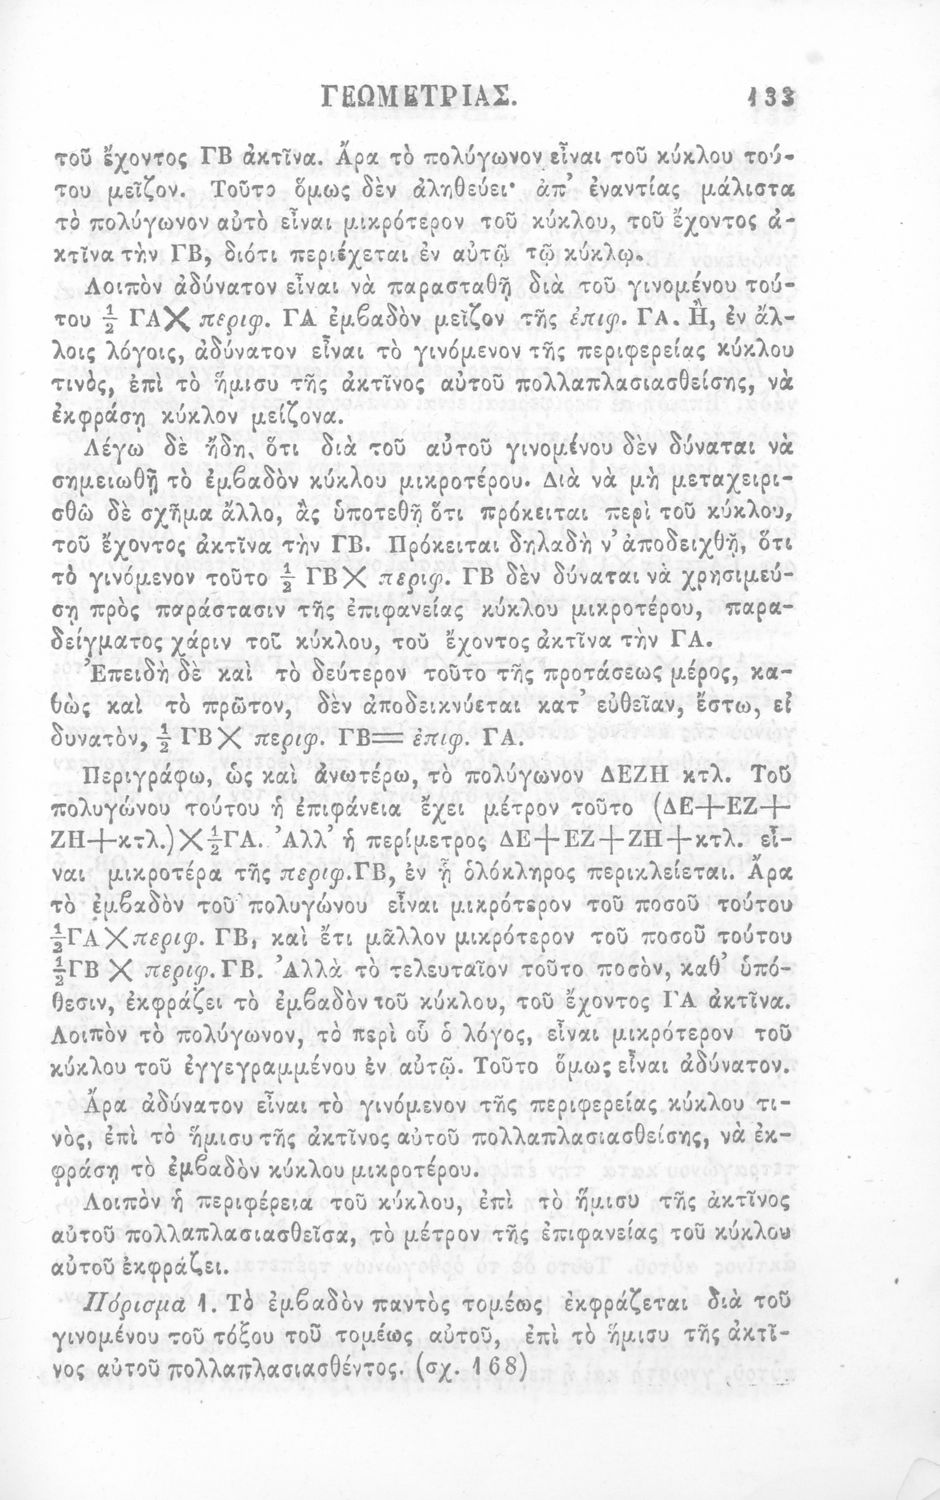 ΓΕΩΜΕΤΡΙΑΣ. 133
τοῦ ἔχοντος ΓΒ ἀκτῖνα. Ἄρα τὸ πολύγωνον εἶναι τοῦ κύκλου τού-
του μεῖζον. Τοῦτο ὅμως δὲν ἀληθεύει· ἀπ’ ἐναντίας μάλιστα
τὸ πολύγωνον αὐτὸ εἶναι μικρότερον τοῦ κύκλου, τοῦ ἔχοντος ἀ-
κτῖνα τὴν ΓΒ, διότι περιέχεται ἐν αὐτῷ τῷ κύκλῳ.
Λοιπὸν ἀδύνατον εἶναι νὰ παρασταθῇ διὰ τοῦ γινομένου τού-
του ½ ΓΑ✕ περιφ. ΓΑ ἐμβαδὸν μεῖζον τῆς ἐπιφ. ΓΑ. Ἢ, ἐν ἄλ-
λοις λόγοις, ἀδύνατον εἶναι τὸ γινόμενον τῆς περιφερείας κύκλου
τινὸς, ἐπὶ τὸ ἥμισυ τῆς ἀκτῖνος αὐτοῦ πολλαπλασιασθείσης, νὰ
ἐκφράσῃ κύκλον μείζονα.
Λέγω δὲ ἤδη, ὅτι διὰ τοῦ αὐτοῦ γινομένου δὲν δύναται νὰ
σημειωθῇ τὸ ἐμβαδὸν κύκλου μικροτέρου. Διὰ νὰ μὴ μεταχειρι-
σθῶ δὲ σχῆμα ἄλλο, ἂς ὑποτεθῇ ὅτι πρόκειται περὶ τοῦ κύκλου,
τοῦ ἔχοντος ἀκτῖνα τὴν ΓΒ. Πρόκειται δηλαδὴ ν’ ἀποδειχθῇ, ὅτι
τὸ γινόμενον τοῦτο ½ ΓΒ✕ περιφ. ΓΒ δὲν δύναται νὰ χρησιμεύ-
σῃ πρὸς παράστασιν τῆς ἐπιφανείας κύκλου μικροτέρου, παρα-
δείγματος χάριν τοῦ κύκλου, τοῦ ἔχοντος ἀκτῖνα τὴν ΓΑ.
Ἐπειδὴ δὲ καὶ τὸ δεύτερον τοῦτο τῆς προτάσεως μέρος, κα-
θὼς καὶ τὸ πρῶτον, δὲν ἀποδεικνύεται κατ’ εὐθεῖαν, ἔστω, εἰ
δυνατὸν, ½ ΓΒ✕ περιφ. ΓΒ= ἐπιφ. ΓΑ.
Περιγράφω, ὡς καὶ ἀνωτέρω, τὸ πολύγωνον ΔΕΖΗ κτλ. Τοῦ
πολυγώνου τούτου ἡ ἐπιφάνεια ἔχει μέτρον τοῦτο (ΔΕ+ΕΖ+
ΖΗ+κτλ.)✕½ΓΑ. Ἀλλ’ ἡ περίμετρος ΔΕ+ΕΖ+ΖΗ+κτλ. εἶ-
ναι μικροτέρα τῆς περιφ.ΓΒ, ἐν ᾗ ὁλόκληρος περικλείεται. Ἄρα
τὸ ἐμβαδὸν τοῦ πολυγώνου εἶναι μικρότερον τοῦ ποσοῦ τούτου
½ΓΑ✕περιφ. ΓΒ, καὶ ἔτι μᾶλλον μικρότερον τοῦ ποσοῦ τούτου
½ΓΒ ✕ περιφ.ΓΒ. Ἀλλὰ τὸ τελευταῖον τοῦτο ποσὸν, καθ’ ὑπό-
θεσιν, ἐκφράζει τὸ ἐμβαδὸν τοῦ κύκλου, τοῦ ἔχοντος ΓΑ ἀκτῖνα.
Λοιπὸν τὸ πολύγωνον, τὸ περὶ οὗ ὁ λόγος, εἶναι μικρότερον τοῦ
κύκλου τοῦ ἐγγεγραμμένου ἐν αὐτῷ. Τοῦτο ὅμως εἶναι ἀδύνατον.
Ἄρα ἀδύνατον εἶναι τὸ γινόμενον τῆς περιφερείας κύκλου τι-
νὸς, ἐπὶ τὸ ἥμισυ τῆς ἀκτῖνος αὐτοῦ πολλαπλασιασθείσης, νὰ ἐκ-
φράσῃ τὸ ἐμβαδὸν κύκλου μικροτέρου.
Λοιπὸν ἡ περιφέρεια τοῦ κύκλου, ἐπὶ τὸ ἥμισυ τῆς ἀκτῖνος
αὐτοῦ πολλαπλασιασθεῖσα, τὸ μέτρον τῆς ἐπιφανείας τοῦ κύκλου
αὐτοῦ ἐκφράζει.
Πόρισμα 1. Τὸ ἐμβαδὸν παντὸς τομέως ἐκφράζεται διὰ τοῦ
γινομένου τοῦ τόξου τοῦ τομέως αὐτοῦ, ἐπὶ τὸ ἥμισυ τῆς ἀκτῖ-
νος αὐτοῦ πολλαπλασιασθέντος. (σχ. 168)